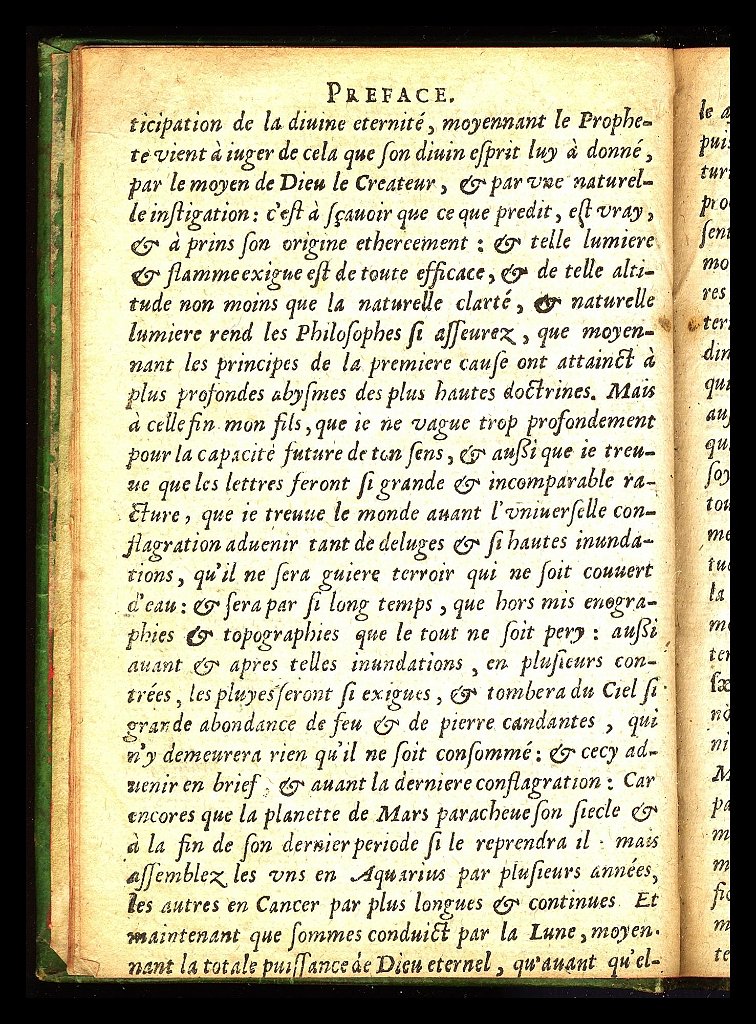 PREFACE.
ticipation de la diuine eternité, moyennant le Prophe-
te vient à iuger de cela que ſon diuin eſprit luy à donné,
par le moyen de Dieu le Createur, & par vne naturel-
le inſtigation: c'eſt à ſçauoir que ce que predit, eſt vray,
& à prins ſon origine ethereement : & telle lumiere
& flamme exigue eſt de toute efficace, & de telle alti-
tude non moins que la naturelle clarté, & naturelle
lumiere rend les Philoſophes ſi aſſeurez, que moyen-
nant les principes de la premiere cauſe ont attainct à
plus profondes abyſmes des plus hautes doctrines. Mais
à celle fin mon fils, que ie ne vague trop profondement
pour la capacité future de ton ſens, & außi que ie treu-
ue que les lettres feront ſi grande & incomparable ia-
cture, que ie treuue le monde auant l'vniuerſelle con-
flagration aduenir tant de deluges & ſi hautes inunda-
tions, qu'il ne ſera guiere terroir qui ne ſoit couuert
d'eau: & ſera par ſi long temps, que hors mis enogra-
phies & topographies que le tout ne ſoit pery : außi
auant & apres telles inundations, en pluſieurs con-
trées, les pluyes ſeront ſi exigues, & tombera du Ciel ſi
grande abondance de feu & de pierre candantes, qui
n'y demeurera rien qu'il ne ſoit conſommé: & cecy ad-
uenir en brief, & auant la derniere conflagration : Car
encores que la planette de Mars paracheue ſon ſiecle &
à la fin de ſon dernier periode ſi le reprendra il : mais
aſſemblez les vns en Aquarius par pluſieurs années,
les autres en Cancer par plus longues & continues. Et
maintenant que ſommes conduict par la Lune, moyen-
nant la totale puiſſance de Dieu eternel, qu'auant qu'el-